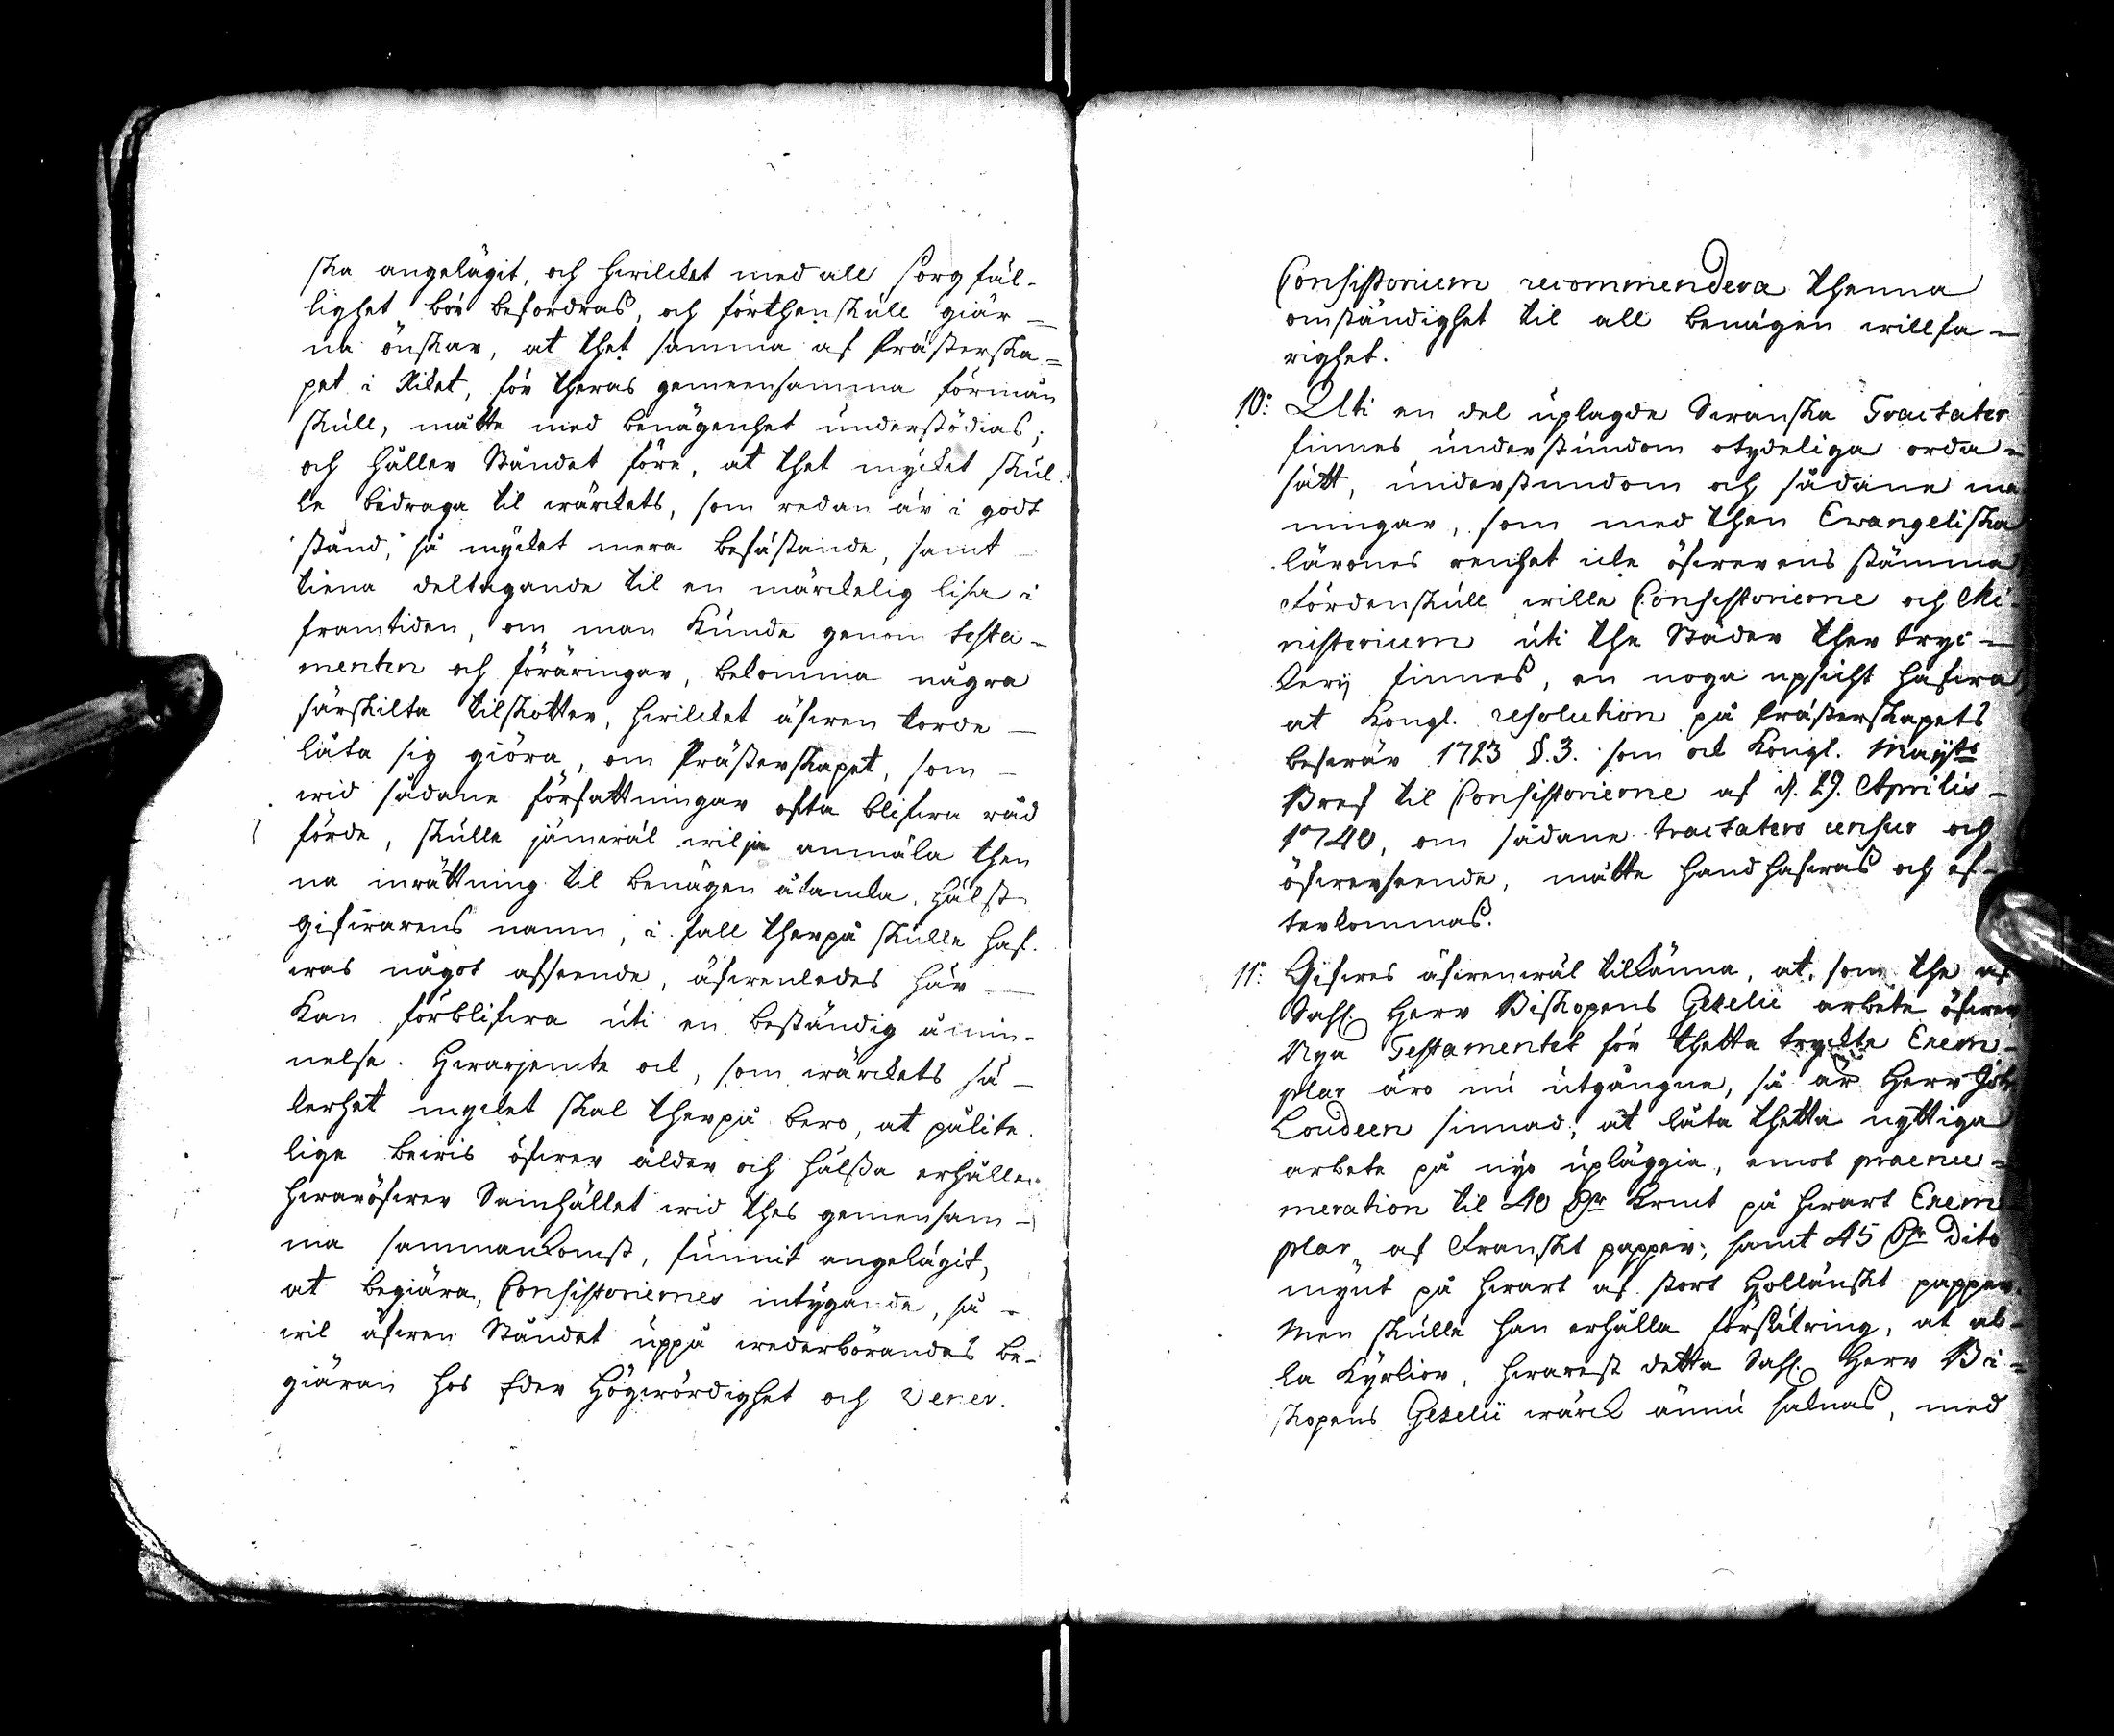 ska angelägit, och hwilcket med all sorgfäl-
lighet bör befordras, och förthenskull giär-
na önskar, at thet samma af Prästerska-
pet i Riket, för theras gemeensamma förmån
skull, måtte med benägenhet understödias;
och håller Ståndet före, at thet mycket skul-
le bidraga til wärckets, som redan är i godt
stånd, så mycket mera befästande, samt
tiena deltagande til en märckelig lisa i
framtiden, om man kunde genom testa-
menten och föräringar, bekomma några
särskilta tilskotter, hwilcket äfwen torde
låta sig giöra, om Prästerskapet, som
wid sådane författningar ofta blifwa råd
förde, skulle jämwäl wilja anmäla then
na inrättning til benägen åtancka, hälst
gifwarens namn, i fall therpå skulle haf-
was något afseende, äfwenledes här
kan förblifwa uti en beständig åmin-
nelse. Hwarjemte ock, som wärckets sä-
kerhet mycket skal therpå bero, at pålite-
lige bewis öfwer ålder och hälsa erhålles
hwaröfwer Samhället wid thes gemensam-
ma sammankomst, funnit angelägit,
at begiära, Consistoriernes intygande, så
wil äfwen Ståndet uppå wederbörandes be-
giäran hos Eder Högwördighet och Vener.
Consistorium recommendera thenna
omständighet til all benägen willfa-
righet.
10: Uti en del uplagde Swenska Tractater
finnes understundom otydeliga orda-
sätt, understundom och sådane me
ningar, som med then Evangeliska
lärones renhet icke öfwerens stämma
Fördenskull wille Consistorierne och Mi-
nisterium uti the Städer ther tryc-
kerij finnes, en noga upsicht hafwa,
at Kongl. resolution på Prästerskapets
beswär 1723 §. 3. som ock Kongl. Maÿts
Bref til Consistorierne af d. 29. Aprilis
1740, om sådane tractaters censur och
öfwerseende, måtte handhafwas och ef-
terkommas.
11: Gifwes äfwenwäl tilkänna, at, som the af
Sahl. Herr Biskopens Gezelii arbete öfwer
Nya Testamentet för thetta tryckte Exem-
plar äro nu utgångne, så är Herr
Loudeen sinnad, at låta thetta nyttiga
arbete på nyo upläggia, emot praenu-
meration til 40 Dr Krmt på hwart Exem-
plar af Franskt papper, samt 45 Dr dito
mynt på hwart af stort Hollänskt papper.
Men skulle han erhålla försäkring, at al-
la Kyrkior, hwarest detta Sahl. Herr Bi-
skopens Gezelii wärck ännu saknas, med